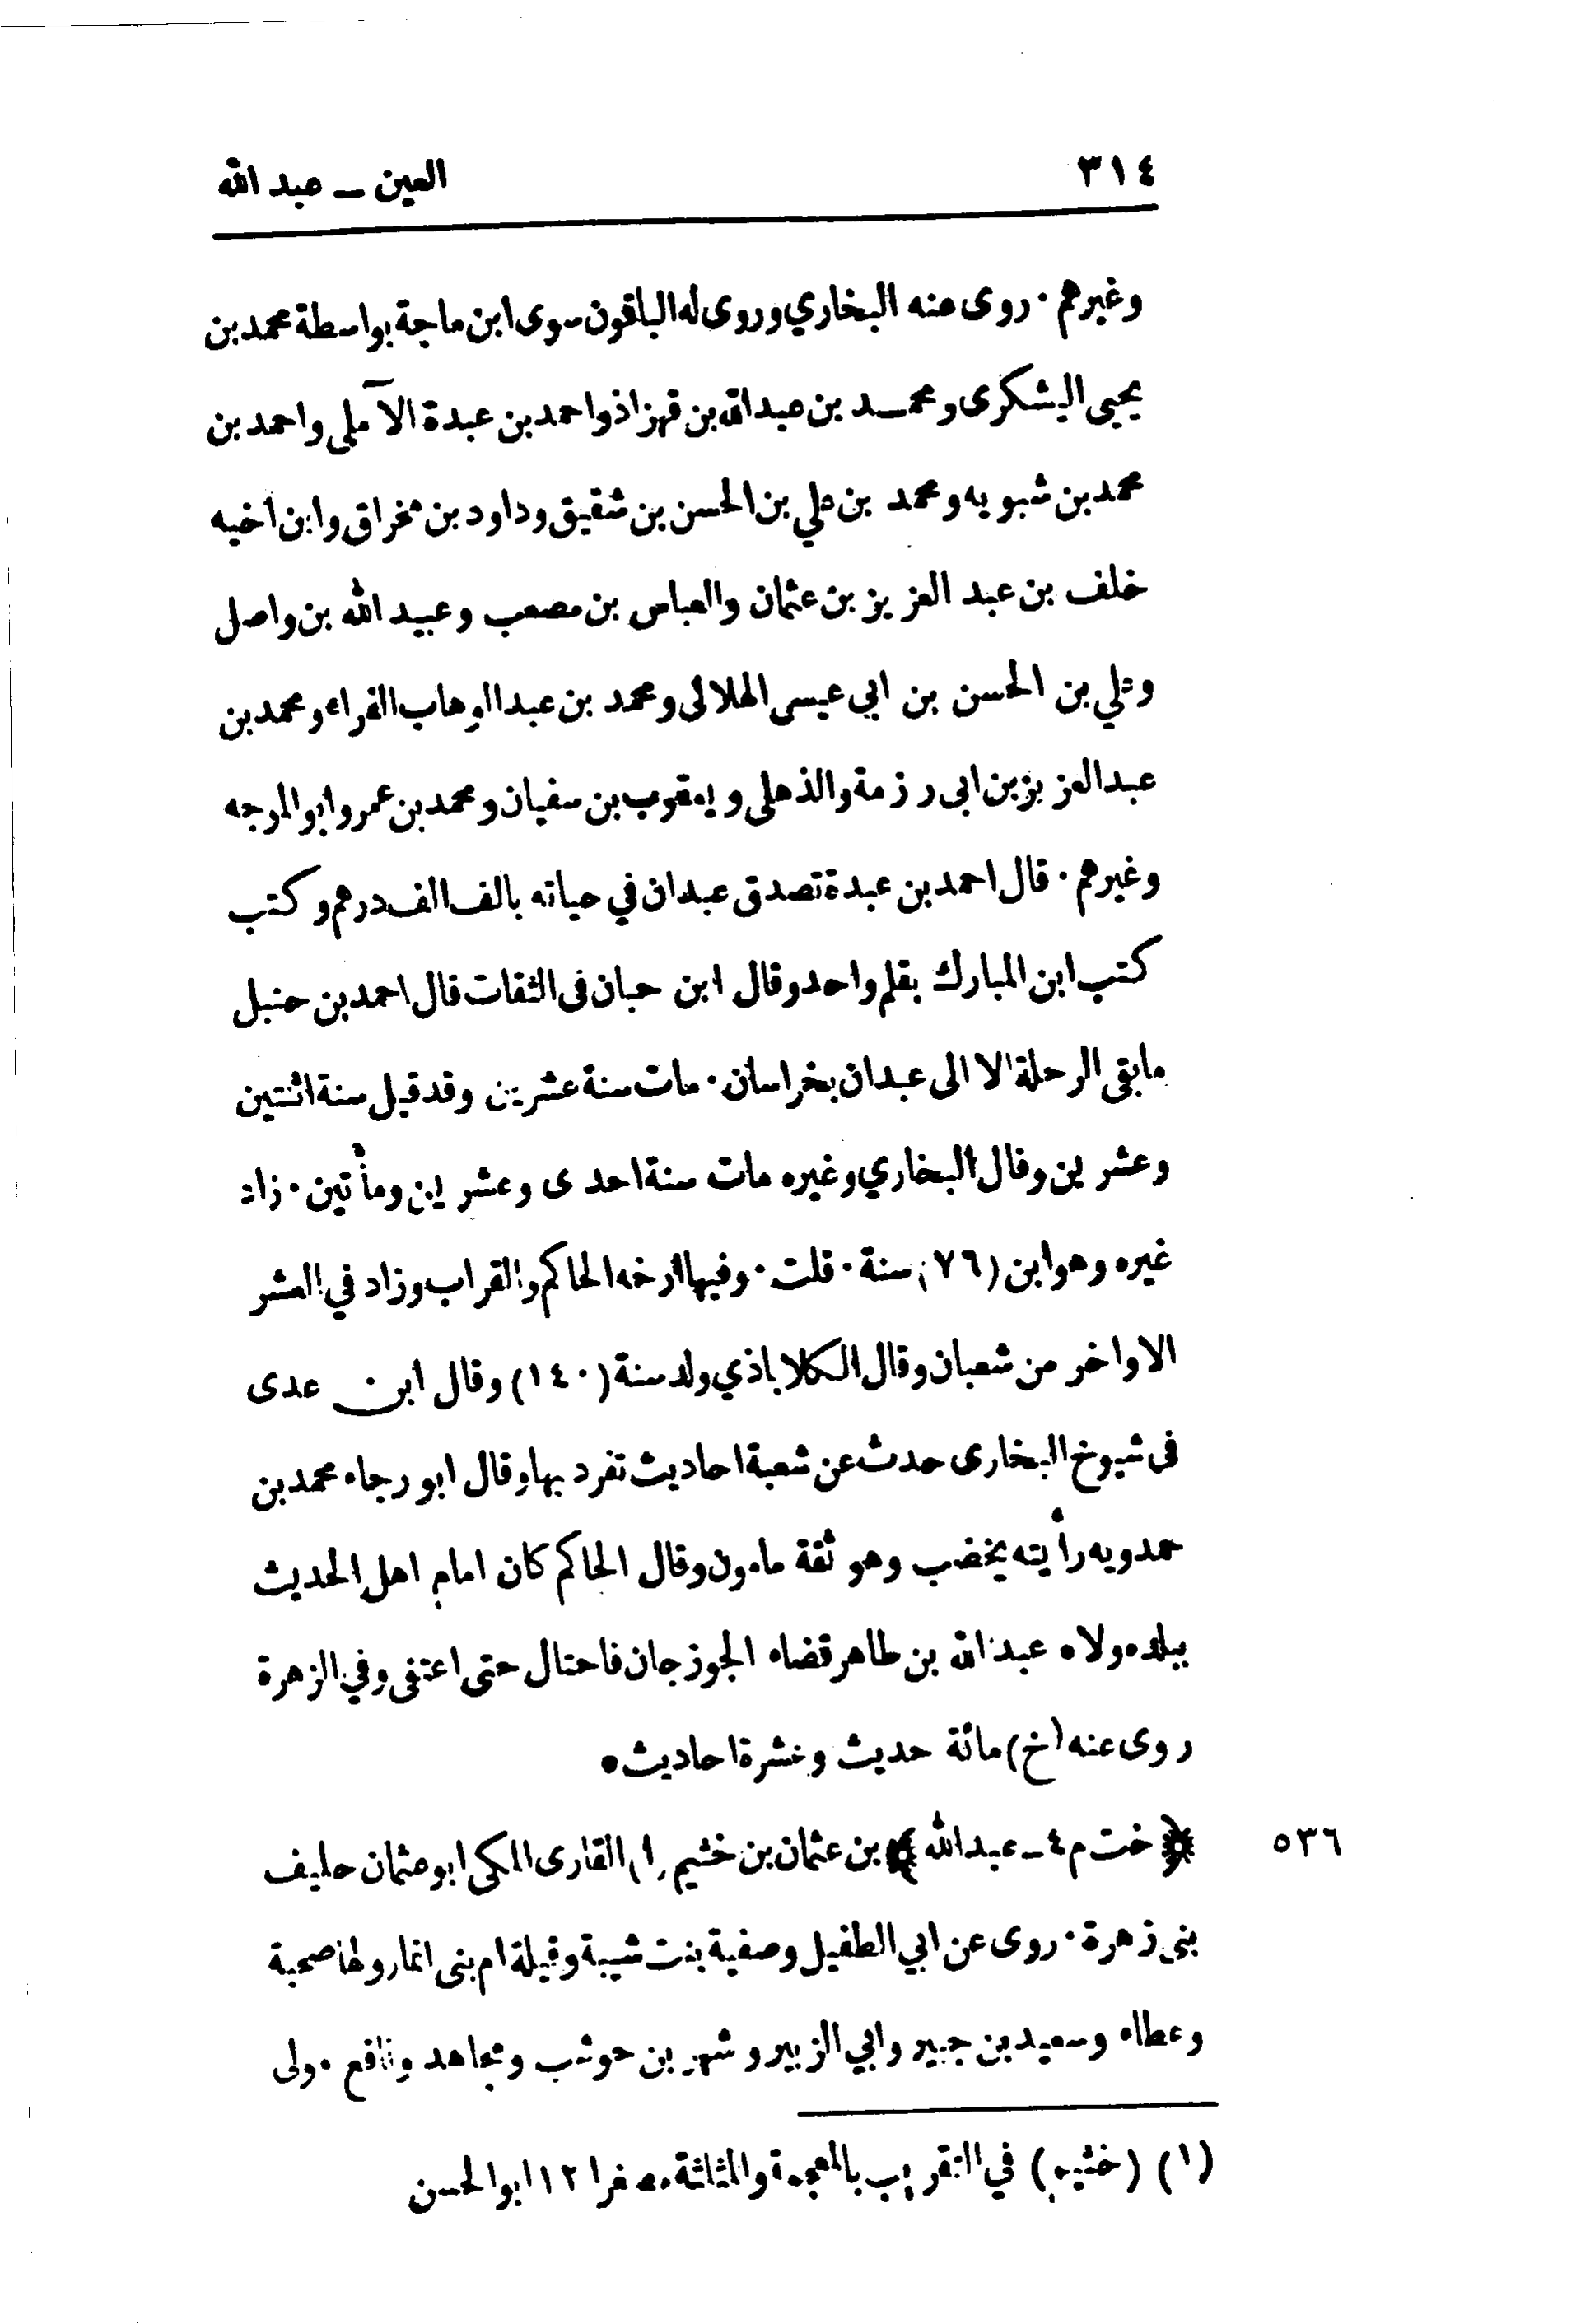 ٣١٤
العين ـ عبد الله
وغيرهم ٠ روى عنه البخاري وروى له الباقون سوى ابن ماجة بواسطة محمد بن
يحيى اليشكرى ومحمد بن عبد الله بن قهزاذ واحمد بن عبدة الآملى واحمد بن
محمد بن شبويه ومحمد بن علي بن الحسن بن شقيق وداود بن مخراق وابن اخيه
خلف بن عبد العزيز بن عثمان والعباس بن مصعب وعبيد الله بن واصل
وعلي بن الحسن بن ابي عيسى الهلالى ومحمد بن عبد الوهاب الفراء ومحمد بن
عبد العزيز بن ابى رزمة والذهلى ويعقوب بن سفيان ومحمد بن عمرو ابو الموجه
وغيرهم ٠ قال احمد بن عبدة تصدق عبدان في حياته بالف الف درهم وكتب
كتب ابن المبارك بقلم واحد وقال ابن حبان فى الثقات قال احمد بن حنبل
مابقى الرحلة الا الى عبدان بخراسان ٠ مات سنة عشرين وقد قيل سنة اثنتين
وعشرين وقال البخاري وغيره مات سنة احدى وعشرين ومأتين ٠ زاد
غيره وهو ابن (٧٦) سنة ٠ قلت ٠ وفيها أرخه الحاكم والقراب وزاد في العشر
الاواخر من شعبان وقال الكلاباذي ولد سنة (١٤٠) وقال ابن عدى
فى شيوخ البخارى حدث عن شعبة احاديث تفرد بها وقال ابو رجاء محمد بن
حمدويه رأيته يخضب وهو ثقة مامون وقال الحاكم كان امام اهل الحديث
ببلده ولاه عبد الله بن طاهر قضاء الجوزجان فاحتال حتى اعتفى وفي الزهرة
روى عنه (خ) مائة حديث وعشرة احاديث ٥
٥٣٦
﴿ خت م ٤ ـ عبد الله ﴾ بن عثمان بن خثيم (١) القارى المكى ابو عثمان حليف
بنى زهرة ٠ روى عن ابي الطفيل وصفية بنت شيبة وقيلة ام بنى انمار ولها صحبة
وعطاء وسعيد بن جبير وابي الزبير وشهر بن حوشب ومجاهد ونافع مولى
(١) (خثيم) في التقريب بالمعجمة والمثلثة مصغرا ١٢ ابو الحسن